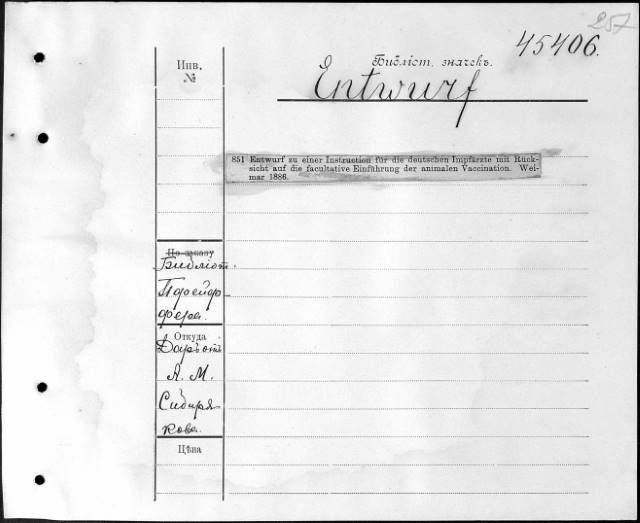 257
45406.
Инв.
№
Библіот. значекъ.
Entwurf
851 Entwurf zu einer Instruction für die deutschen Impfärzte mit Rück-
sicht auf die facultative Einführung der animalen Vaccination. Wei-
mar 1886.
По заказу
Библіот.
Пфейф
фера.
Откуда
Даръ отъ
А. М.
Сибиря
кова.
Цѣна